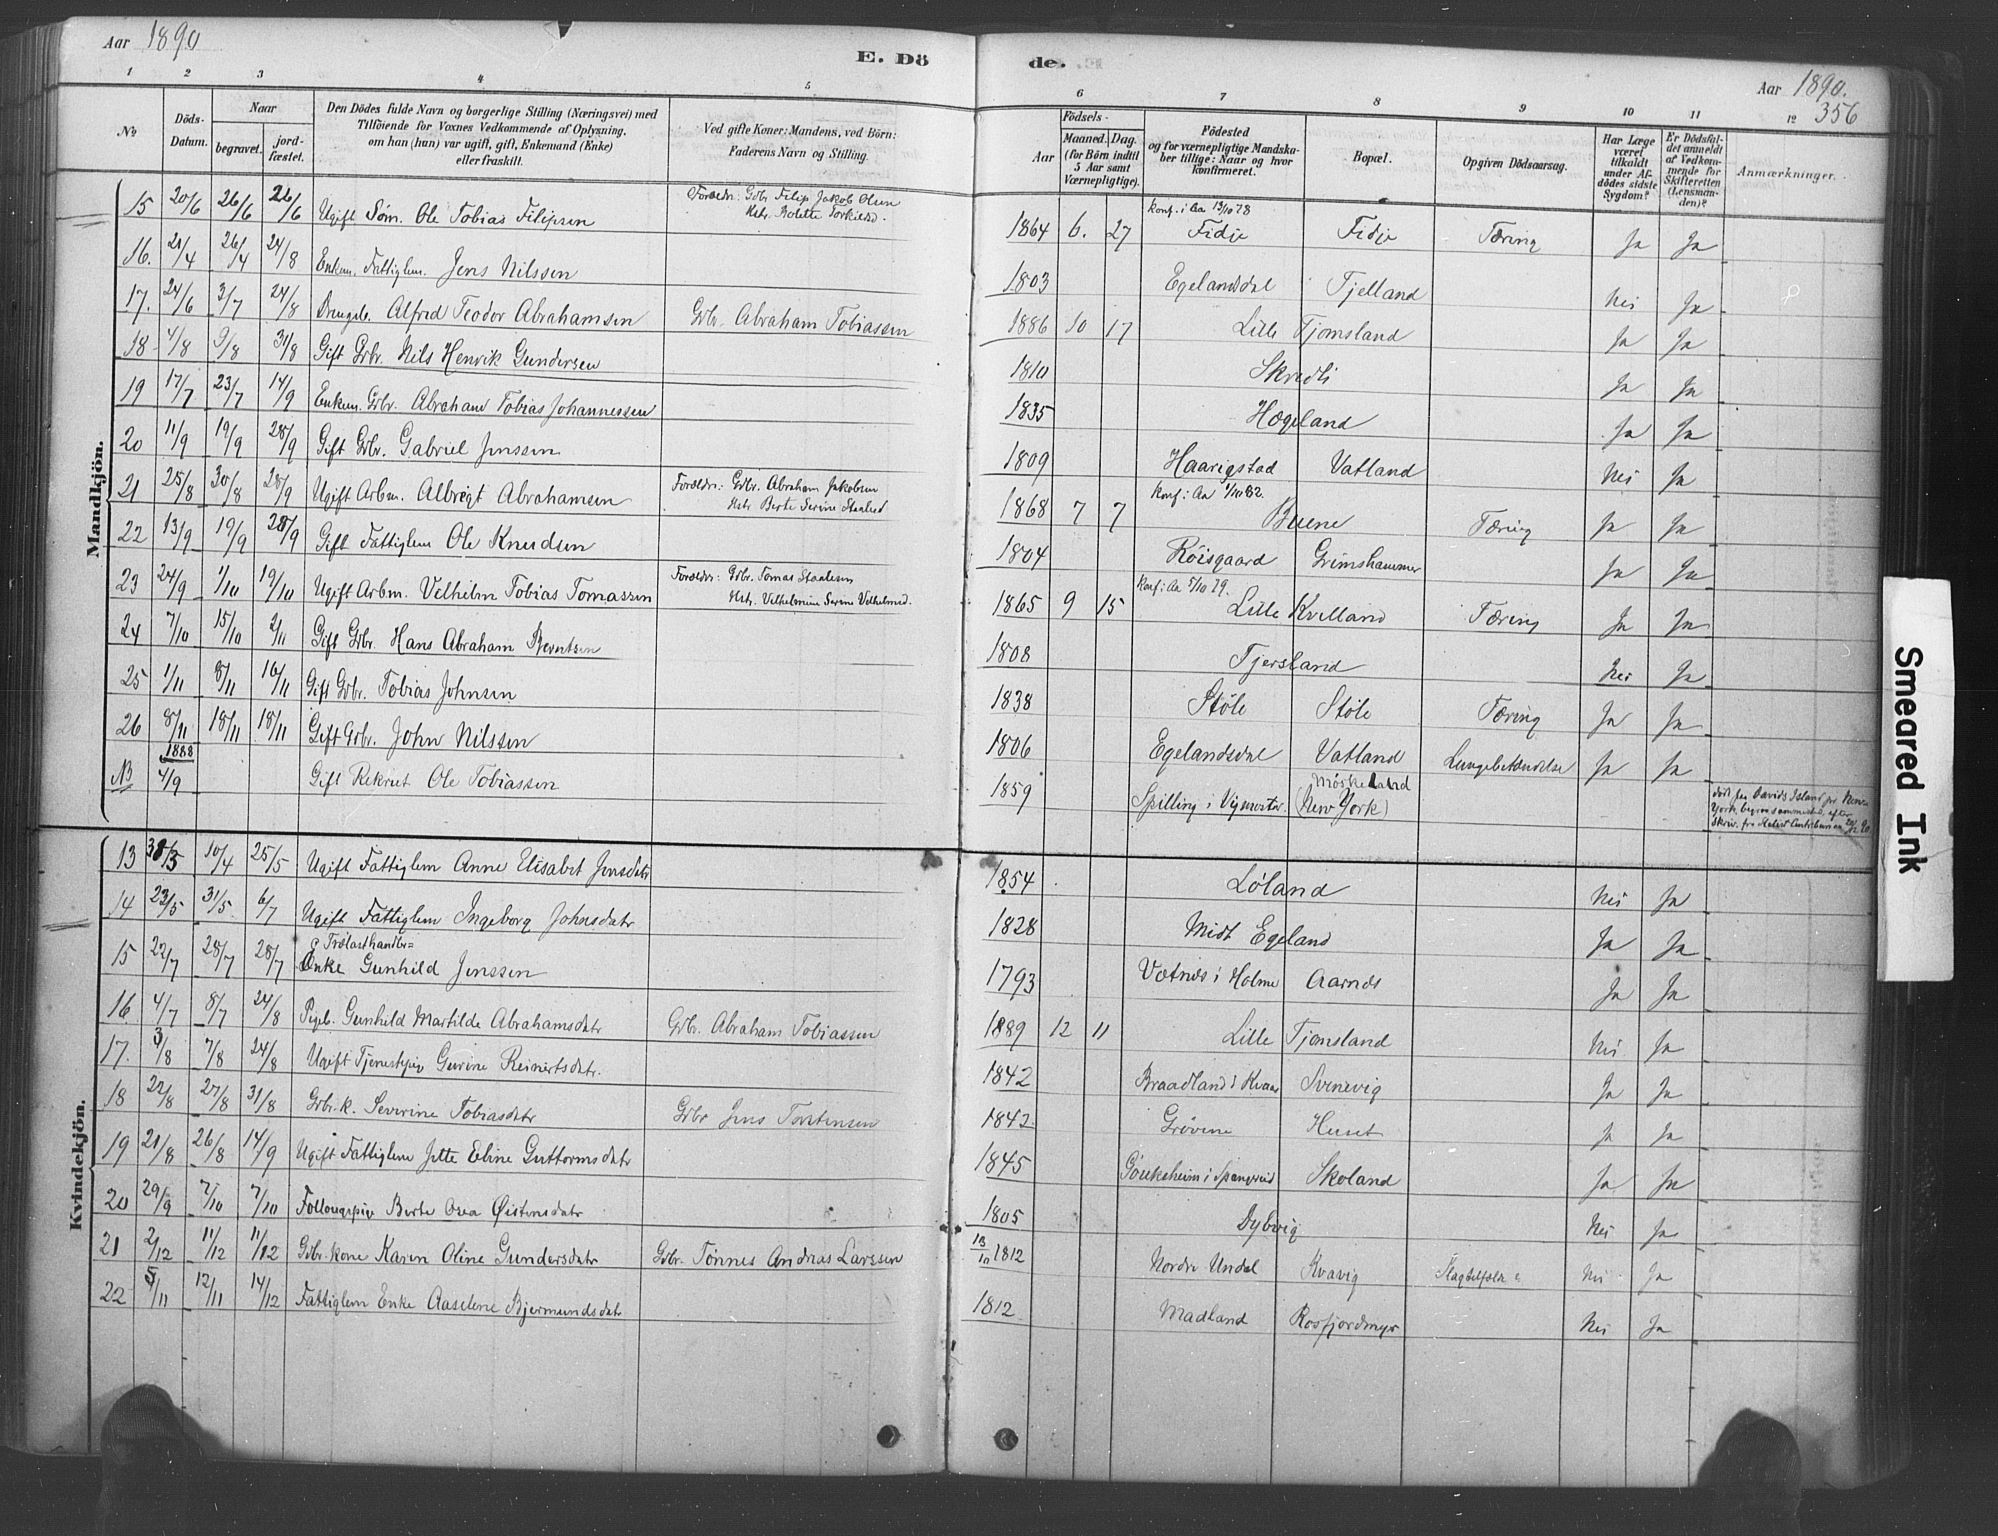 Aar 1890
E. Dö
de.
Aar 1890.
356
1 2 3 4 5 6 7 8 9 10 11 12
No
Döds-Datum.
Naar
begravet.
jord-fæstet.
Den Dödes fulde Navn og borgerlige Stilling (Næringsvei) med
Tilföiende for Voxnes Vedkommende af Oplysning,
om han (hun) var ugift, gift, Enkemand (Enke)
eller fraskilt.
Ved gifte Koner: Mandens, ved Börn:
Faderens Navn og Stilling.
Födsels-
Aar
Maaned. Dag.
(for Börn indtil
5 Aar samt
Værnepligtige).
Födested
og for værnepligtige Mandska-
ber tillige: Naar og hvor
konfirmeret.
Bopæl.
Opgiven Dödsaarsag.
Har Læge
været
tilkaldt
under Af-
dödes sidste
Sygdom?
Er Dödsfal-
det anmeldt
af Vedkom-
mende for
Skifteretten
(Lensman-
den)?
Anmærkninger.
Mandkjön.
15 20/6 26/6 26/6 Ugift Söm. Ole Tobias Filipsen Forældr: Gdbr. Filip Jakob Olsen Hstr. Rolette Torkieldsd. 1864 6. 27 konf. i Aa 13/10 78 Fidje Fidje Tæring Ja Ja
16. 21/4 26/4 24/8 Enkem. Fattiglem. Jens Nilssen 1803 Egelandsdal Tjelland Nei Ja
17. 24/6 3/7 24/8 Drengeb. Alfred Teodor Abrahamsen Gbr. Abraham Tobiassen 1886 10 17 Lille Tjomsland Ja Ja
18 4/8 9/8 31/8 Gift Gbr. Nils Henrik Gundersen 1810 Skredli Ja Ja
19 17/7 23/7 14/9 Enkem. Gbr. Abraham Tobias Johannessen 1835 Hægeland Ja Ja
20 11/9 19/9 28/9 Gift Gbr. Gabriel Jenssen 1809 Haarigstad Vatland Nei Ja
21 25/8 30/8 28/9 Ugift Arbm. Albregt Abrahamsen Forældr: Gdbr. Abraham Jakobsen Hstr. Berte Serine Staalesd 1868 7 7 konf: Aa 1/10 82. Buene Tæring Ja Ja
22 13/9 19/9 28/9 Gift Fattiglem Ole Knudsen 1804 Röisgaard Grimshammer Ja Ja
23 24/9 1/10 19/10 Ugift Arbm. Vilhelm Tobias Tomassen Forældr: Gdbr. Tomas Staalesen Hstr. Vilhelmine Serine Vilhelmsd. 1865 9 15 konf: Aa 5/10 79. Lille Kvelland Tæring Ja Ja
24 7/10 15/10 2/11 Gift Gbr. Hans Abraham Berentsen 1808 Tjersland Nei Ja
25 1/11 8/11 16/11 Gift Gbr. Tobias Johnsen 1838 Støle Støle Tæring Ja Ja
26 8/11 18/11 18/11 Gift Gbr. John Nilssen 1806 Egelandsdal Vatland Lungebetændelse Ja Ja
NB 1888 4/9 Gift Rekrut Ole Tobiassen 1859 Spilling i Vigmostad Møskeland (New York) død paa Davids Island pr New-York
Kvindekjön.
13 10/4 25/5 Ugift Fattiglem Anne Elisabet Jensdatr 1854 Løland Nei Ja
14 23/5 31/5. 6/7 Ugift Fattiglem Ingeborg Johnsdatr 1828 Midt Egeland Ja Ja
15 22/7 28/7 28/7 Trælasthandler= Enke Gunhild Jenssen 1793 Vatnes i Holme Aarnes Ja Ja
16. 4/7 8/7 24/8 Pigeb. Gunhild Martilde Abrahamsdatr Gbr. Abraham Tobiassen 1889 12 11 Lille Tjomsland Nei Ja
17. 3/8 7/8 24/8 Ugift Tjenestepig Gurine Reinertsdatr. 1842 Braadland i Kvaas Svenevig Ja Ja
18 22/8 27/8 31/8 Gbr. k. Severine Tobiasdatr Gbr Jens Torstensen 1842 Grøvene Huset Ja Ja
19 21/8 26/8 14/9 Ugift Fattiglem Jette Eline Guttormsdatr 1845 Gonkeheim i Spangreid Skoland Ja Ja
20 29/9 7/10 7/10 Føllougspige Berte Asea Øistensdatr 1805 Dybvig Nei Ja
21 2/12 11/12 11/12 Gdbr. kone Karen Oline Gundersdatr Gbr. Tønnes Andreas Larssen 13/10 1812 Nordre Undal Kvavig Slagtilfælde Nei Ja
22 5/11 12/11 14/12 Fattiglem Enke Aaselene Bjermundsdatr 1812 Madland Rosfjordmyr Nei Ja
Smeared Ink